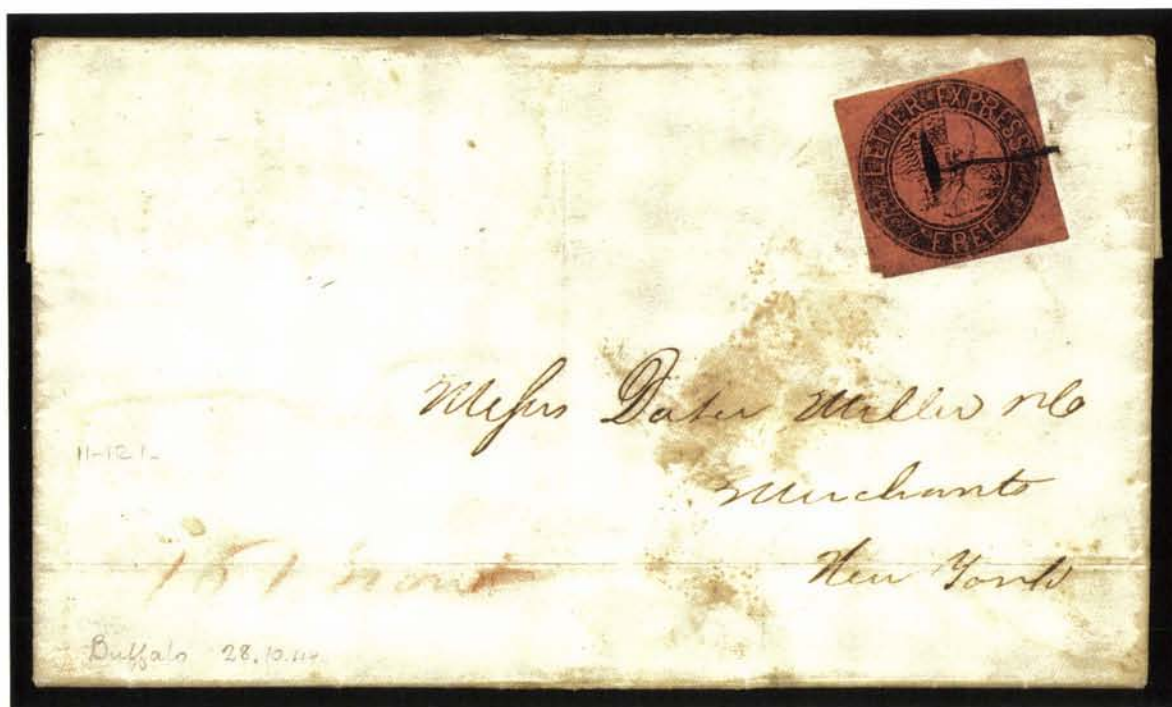 LETTER EXPRESS
FREE
Messrs Dater Miller & Co
Merchants
New York
11-121-
161 Front
Buffalo 28.10.44